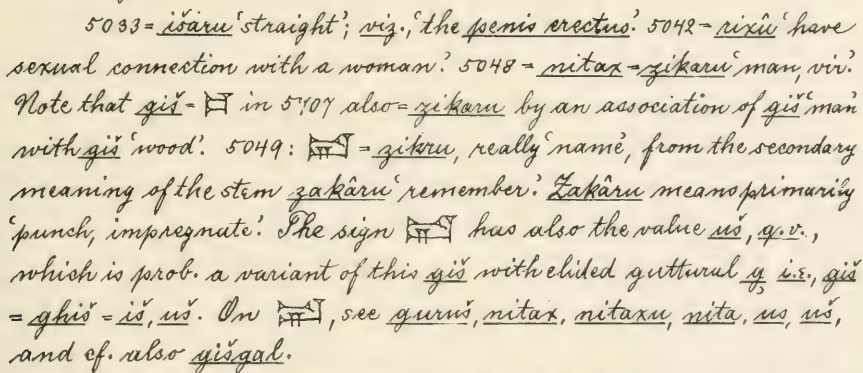 5033 = išâru 'straight'; viz., 'the penis erectus'. 5042 = rixû 'have
sexual connection with a woman'. 5048 = nitax = zikaru 'man, vir'.
Note that giš = 𒄑 in 5707 also = zikaru by an association of giš 'man'
with giš 'wood'. 5049: 𒍑 = zikru, really 'name', from the secondary
meaning of the stem zakâru 'remember'. Zakâru means primarily
'punch, impregnate'. The sign 𒍑 has also the value uš, q.v.,
which is prob. a variant of this giš with elided guttural g i.e., giš
= ghiš = iš, uš. On 𒍑, see guruš, nitax, nitaxu, nita, us, uš,
and cf. also gišgal.